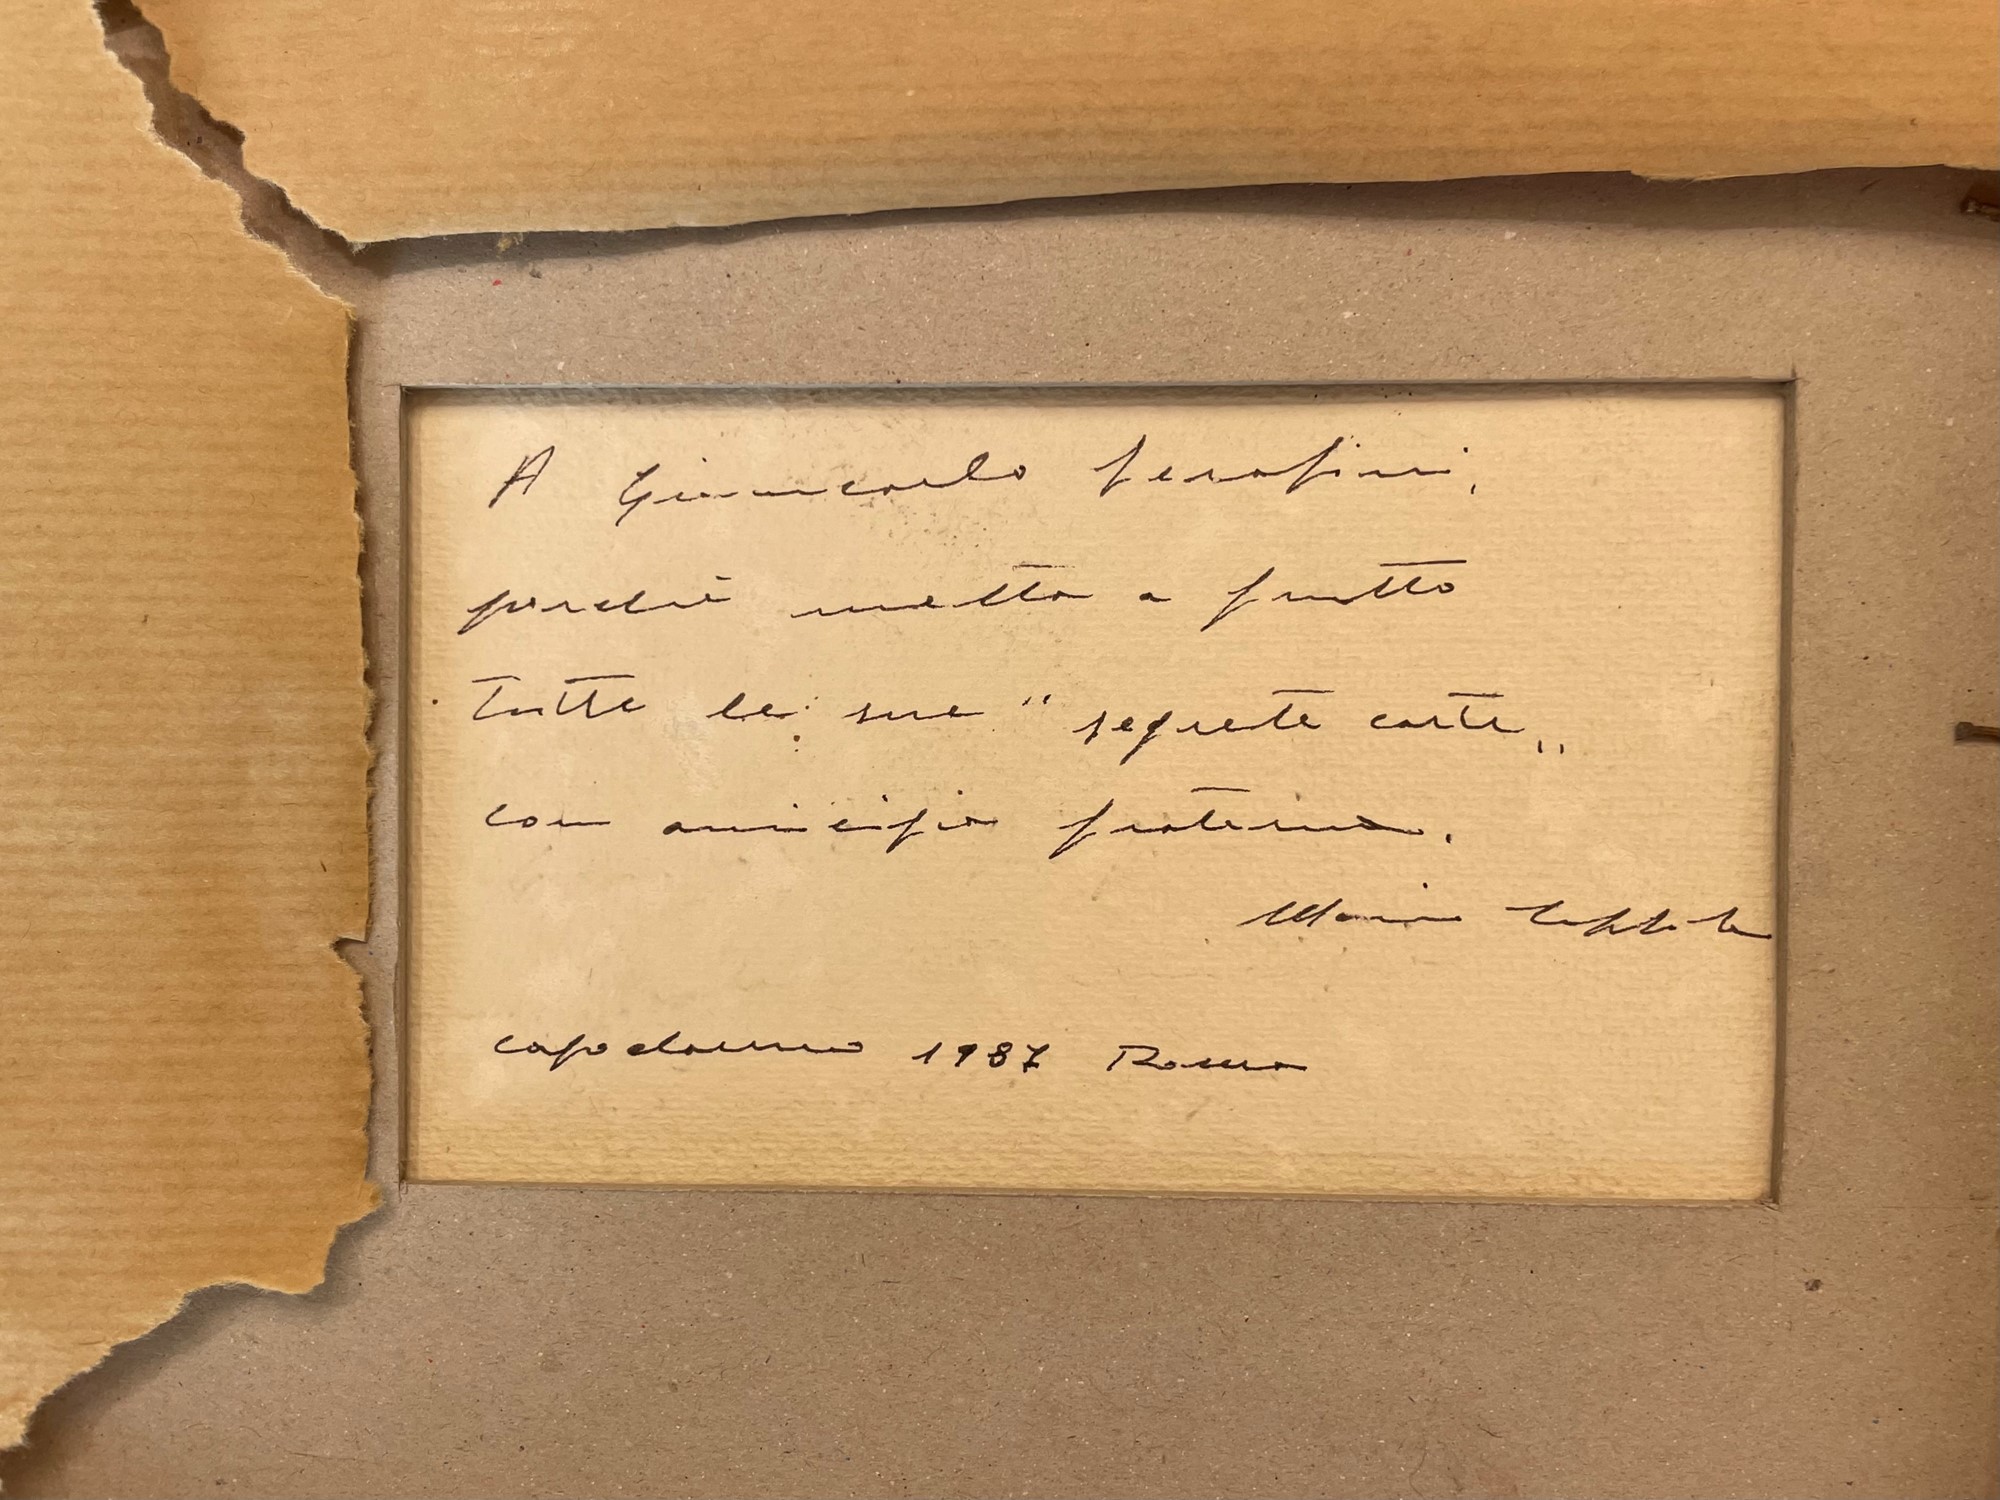 A Giancarlo Serafini,
perché metta a frutto
tutte le sue " segrete carte „
con amicizia fraterna.
Mario
capodanno 1987 Roma